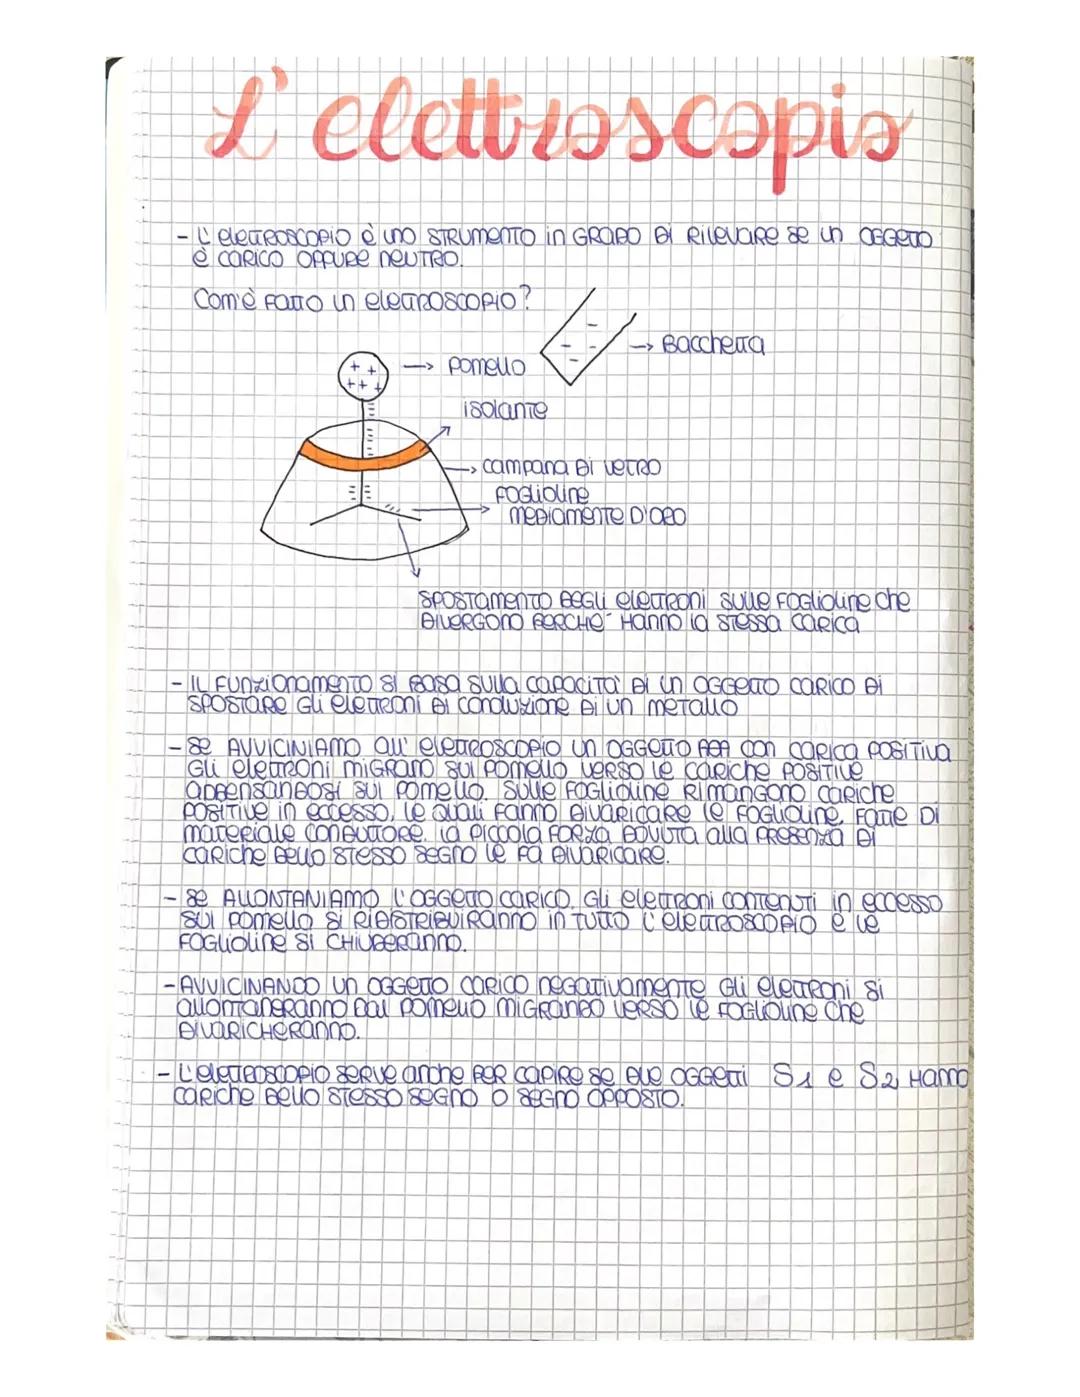 L'elettroscopio
- L'elettroscopio è uno strumento in grado di rilevare se un oggetto
è carico oppure neutro.
Com'è fatto un elettroscopio?
→ Bacchetta
→ pomello
isolante
→ campana di vetro
foglioline
mediamente d'oro
spostamento degli elettroni sulle foglioline che
divergono perché hanno la stessa carica
- Il funzionamento si basa sulla capacità di un oggetto carico di
spostare gli elettroni di conduzione di un metallo
- Se avviciniamo all'elettroscopio un oggetto con carica positiva
gli elettroni migrano sul pomello verso le cariche positive
addensandosi sul pomello. Sulle foglioline rimangono cariche
positive in eccesso, le quali fanno divaricare le foglioline fatte di
materiale conduttore. la piccola forza dovuta alla presenza di
cariche dello stesso segno le fa divaricare.
- Se allontaniamo l'oggetto carico, gli elettroni contenuti in eccesso
sul pomello si ridistribuiranno in tutto l'elettroscopio e le
foglioline si chiuderanno.
- Avvicinando un oggetto carico negativamente gli elettroni si
allontaneranno dal pomello migrando verso le foglioline che
divaricheranno.
- L'elettroscopio serve anche per capire se due oggetti S1 e S2 hanno
cariche dello stesso segno o segno opposto.